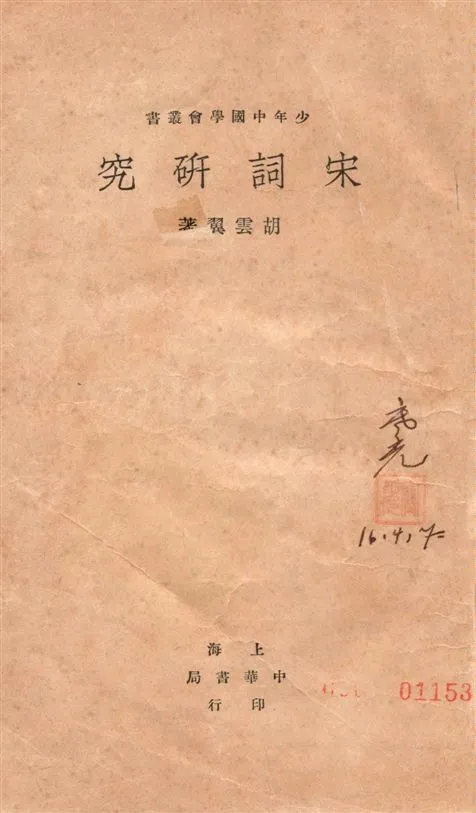 少年中國學會叢書
宋詞硏究
胡雲翼著
16.4,
01153
上海
中華書局
印行